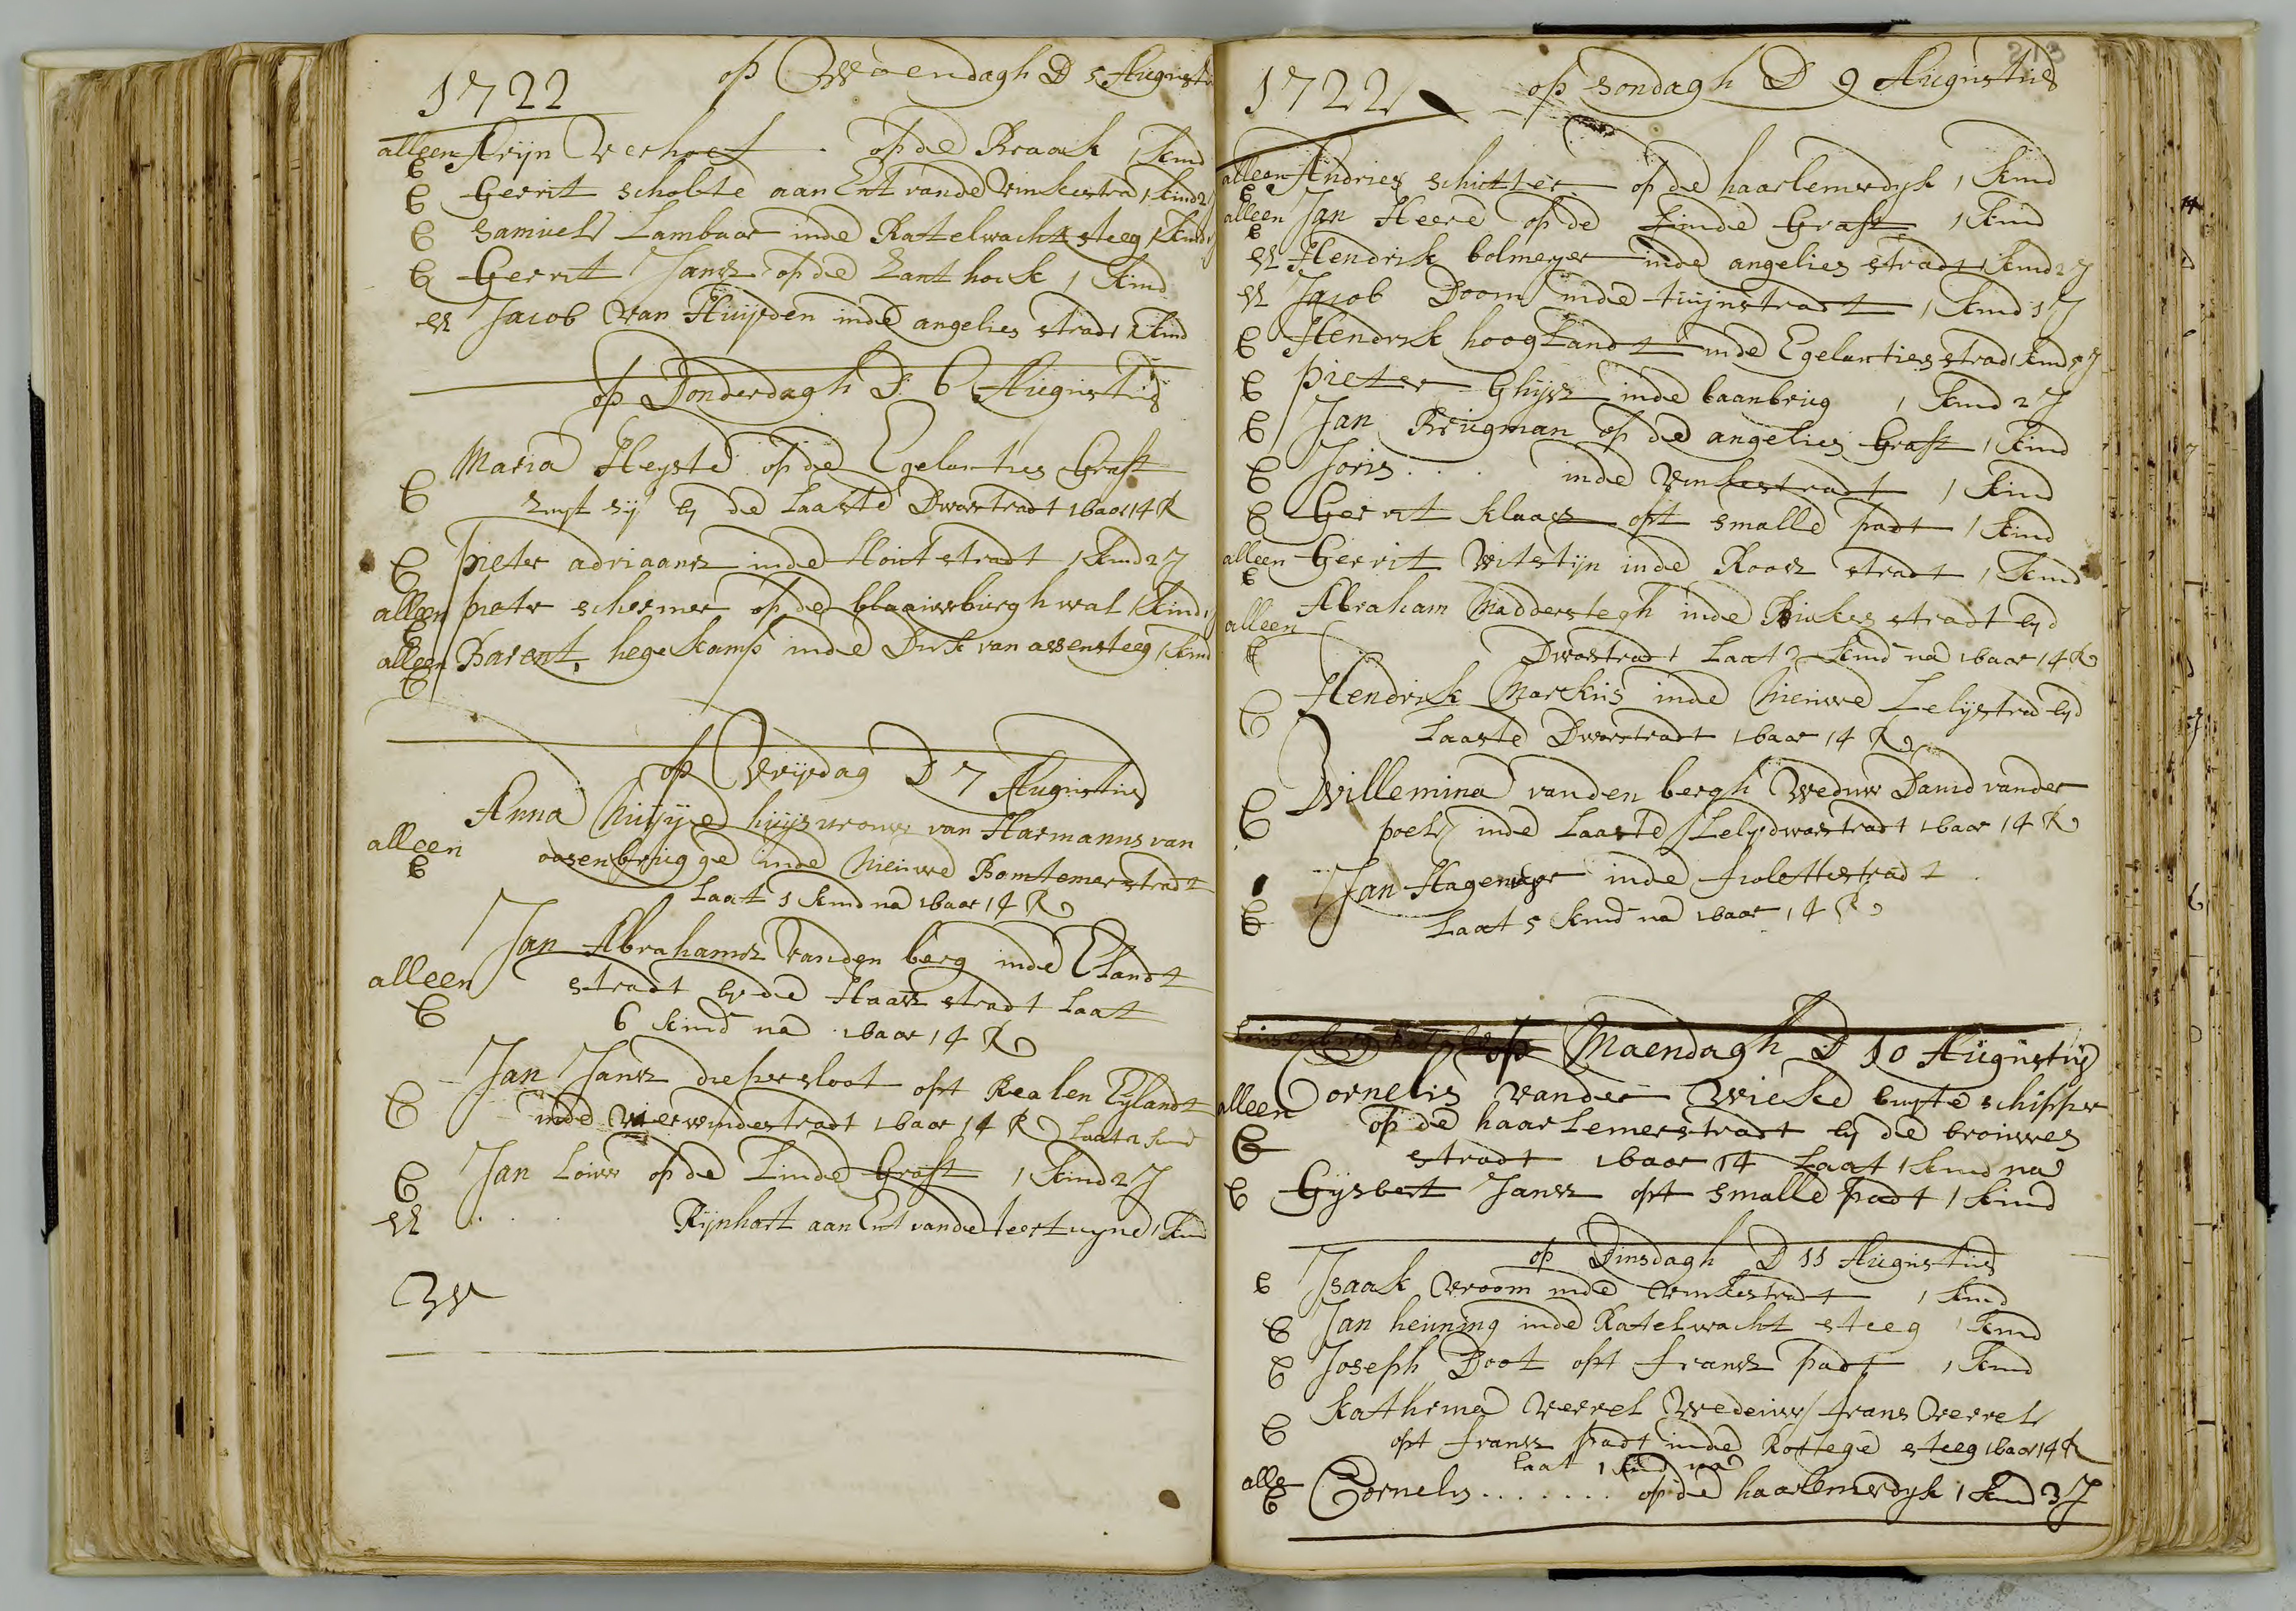 1722 op Woendagh D 5 Augusti
alleen Krijn Verhoef op de Braak 1 kind
E Gerrit scholte aan Ent vande vinkestra 1 kind 2
E Samuel Lambaar inde Ratelwacht steeg 1 kind
E Gerrit Jansz op de Zant hoek 1 kind
Jacob van Huijsden inde angelies stradt 1 kind
op Donderdagh D 6 Augustus
Maria Heyste op de Egelanties Graft
E zuyt zij by de Laaste Dwarstradt 1 baar 14 R
E pieter adriaansz inde Hout stradt 1 kind 2 J
alleen pieter schermer op de blaauwburgh wal 1 kind
E
alleen Barent hegekamp inde Dirk van assensteeg 1 kind
E
op Vrijdag D 7 Augustus
Anna huysvrouw van Harmanus van
alleen oosenbrugge inde Nieuwe Bomtemerstradt
E Laat 1 kind na 1 baar 14 R
Jan Abrahamsz vanden berg inde Elandt
alleen stradt by de Haasz stradt Laat
E 6 kind na 1 baar 14 R
Jan Jansz diepersloot opt Realen Eylandt
E inde vierwindestradt 1 baar 14 R Laat 2 kind
E Jan Louw op de Linde Graft 1 kind 2 J
Rijnhart aan Ent vande teertuyne 1 kind
213
1722 op sondagh D 9 Augustus
alleen Andries schutter op de haarlemerdyk 1 kind
E
alleen Jan Heere op de Linde Graft 1 kind
E
Hendrik bolmeyer inde angelies stradt 1 kind 2 J
Jacob Doorn inde tuijnstradt 1 kind 1 J
E Hendrik hooglandt inde Egelantiers strad 1 kind 5 J
E pieter Ghijsz inde baanbrug 1 kind 2 J
E Jan Brugman op de angelies Graft 1 kind
E Joris . . . inde vinkestradt 1 kind
E Gerrit klaasz opt smalle padt 1 kind
alleen Gerrit witstijn inde Roosz stradt 1 kind
E
Abraham Madderstegh inde stradt by d
alleen Dwarstradt Laat 2 kind na 1 baar 14 R
E
Hendrik Markus inde Nieuwe Lelystrad by d
E Laaste Dwarstradt 1 baar 14 R
Willemina vanden bergh Weduw David vander
E poel inde Laaste Lelydwarstradt 1 baar 14 R
Jan Hagemeyer inde fiolettestradt
E Laat 5 kind na 1 baar 14 R
op Maendagh D 10 Augustus
alleen Cornelis vander Wieke buyte schipper
op de haarlemerstradt by de brouwes
E stradt 1 baar 14 Laat 1 kind na
E Gysbert Jansz opt smalle padt 1 kind
op Dinsdagh D 11 Augustus
E Isaak Vroom inde vinkestradt 1 kind
E Jan henning inde Ratelwacht steeg 1 kind
E Joseph Boot opt fransz padt 1 kind
Kathrina Verrel Wedeuw frans Verrel
E opt fransz padt inde Kottege steeg 1 baar 14 R
Laat 1 kind na
alle Cornelis . . . . . . . op de haarlemerdyk 1 kind 3 J
E